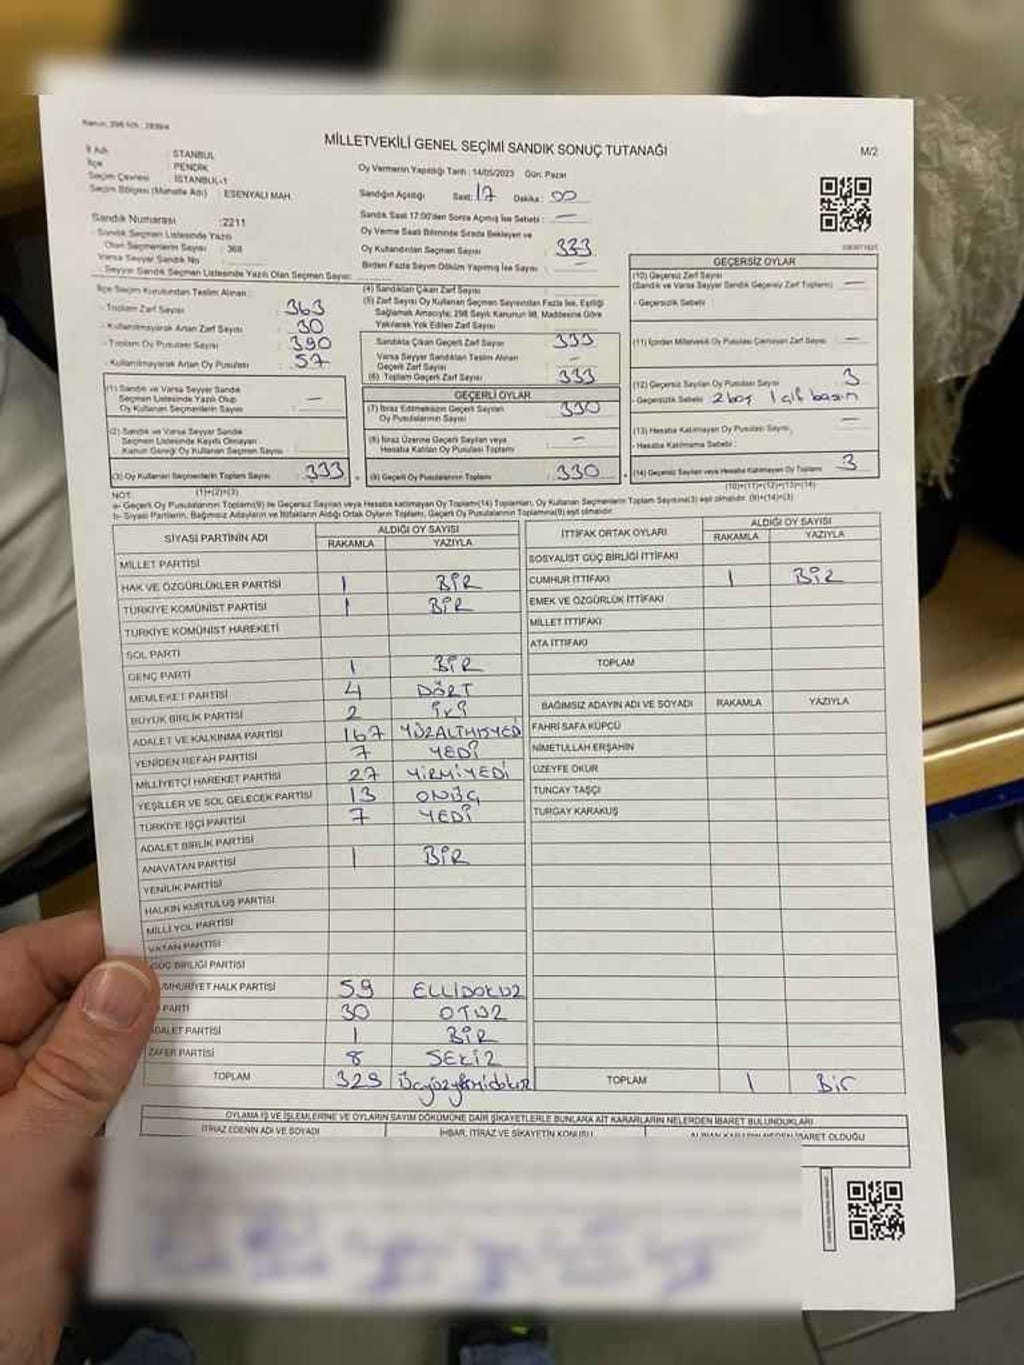 Kanun: 298
MİLLETVEKİLİ GENEL SEÇİMİ SANDIK SONUÇ TUTANAĞI
M/2
İl Adı : İSTANBUL
İlçe : PENDİK
Seçim Çevresi : İSTANBUL-1
Seçim Bölgesi (Mahalle Adı) : ESENYALI MAH.
Oy Vermenin Yapıldığı Tarih : 14/05/2023 Gün: Pazar
Sandığın Açıldığı Saat: 17 Dakika: 00
Sandık Saat 17:00'den Sonra Açılmış İse Sebebi : —
Oy Verme Saati Bitiminde Sırada Bekleyen ve
Oy Kullandırılan Seçmen Sayısı : 333
Birden Fazla Sayım Döküm Yapılmış İse Sayısı : —
Sandık Numarası : 2211
- Sandık Seçmen Listesinde Yazılı
Olan Seçmenlerin Sayısı : 368
Varsa Seyyar Sandık No
- Seyyar Sandık Seçmen Listesinde Yazılı Olan Seçmen Sayısı:
İlçe Seçim Kurulundan Teslim Alınan :
- Toplam Zarf Sayısı : 363
- Kullanılmayarak Artan Zarf Sayısı : 30
- Toplam Oy Pusulası Sayısı : 390
- Kullanılmayarak Artan Oy Pusulası : 57
(1) Sandık ve Varsa Seyyar Sandık
Seçmen Listesinde Yazılı Olup
Oy Kullanan Seçmenlerin Sayısı : —
(2) Sandık ve Varsa Seyyar Sandık
Seçmen Listesinde Kayıtlı Olmayan
Kanun Gereği Oy Kullanan Seçmen Sayısı :
(3) Oy Kullanan Seçmenlerin Toplam Sayısı : 333
(1)+(2)=(3)
(4) Sandıktan Çıkan Zarf Sayısı :
(5) Zarf Sayısı Oy Kullanan Seçmen Sayısından Fazla İse, Eşitliği
Sağlamak Amacıyla; 298 Sayılı Kanunun 98. Maddesine Göre
Yakılarak Yok Edilen Zarf Sayısı :
Sandıkta Çıkan Geçerli Zarf Sayısı : 333
Varsa Seyyar Sandıktan Teslim Alınan
Geçerli Zarf Sayısı : —
(6) Toplam Geçerli Zarf Sayısı : 333
GEÇERLİ OYLAR
(7) İtiraz Edilmeksizin Geçerli Sayılan
Oy Pusulalarının Sayısı : 330
(8) İtiraz Üzerine Geçerli Sayılan veya
Hesaba Katılan Oy Pusulası Toplamı : —
(9) Geçerli Oy Pusulalarının Toplamı : 330
GEÇERSİZ OYLAR
(10) Geçersiz Zarf Sayısı
(Sandık ve Varsa Seyyar Sandık Geçersiz Zarf Toplamı) : —
- Geçersizlik Sebebi :
(11) İçinden Milletvekili Oy Pusulası Çıkmayan Zarf Sayısı : —
(12) Geçersiz Sayılan Oy Pusulası Sayısı : 3
- Geçersizlik Sebebi : 2 boş 1 çift basım
(13) Hesaba Katılmayan Oy Pusulası Sayısı : —
- Hesaba Katılmama Sebebi :
(14) Geçersiz Sayılan veya Hesaba Katılmayan Oy Toplamı : 3
(10)+(11)+(12)+(13)=(14)
NOT:
a- Geçerli Oy Pusulalarının Toplamı(9) ile Geçersiz Sayılan veya Hesaba katılmayan Oy Toplamı(14) Toplamları, Oy Kullanan Seçmenlerin Toplam Sayısına(3) eşit olmalıdır. (9)+(14)=(3)
b- Siyasi Partilerin, Bağımsız Adayların ve İttifakların Aldığı Ortak Oyların Toplamı, Geçerli Oy Pusulalarının Toplamına(9) eşit olmalıdır.
SİYASİ PARTİNİN ADI ALDIĞI OY SAYISI
RAKAMLA YAZIYLA
MİLLET PARTİSİ
HAK VE ÖZGÜRLÜKLER PARTİSİ 1 BİR
TÜRKİYE KOMÜNİST PARTİSİ 1 BİR
TÜRKİYE KOMÜNİST HAREKETİ
SOL PARTİ
GENÇ PARTİ 1 BİR
MEMLEKET PARTİSİ 4 DÖRT
BÜYÜK BİRLİK PARTİSİ 2 İKİ
ADALET VE KALKINMA PARTİSİ 167 YÜZALTMIŞYEDİ
YENİDEN REFAH PARTİSİ 7 YEDİ
MİLLİYETÇİ HAREKET PARTİSİ 27 YİRMİYEDİ
YEŞİLLER VE SOL GELECEK PARTİSİ 13 ONÜÇ
TÜRKİYE İŞÇİ PARTİSİ 7 YEDİ
ADALET BİRLİK PARTİSİ
ANAVATAN PARTİSİ 1 BİR
YENİLİK PARTİSİ
HALKIN KURTULUŞ PARTİSİ
MİLLİ YOL PARTİSİ
VATAN PARTİSİ
GÜÇ BİRLİĞİ PARTİSİ
UMHURİYET HALK PARTİSİ 59 ELLİDOKUZ
PARTİ 30 OTUZ
ADALET PARTİSİ 1 BİR
ZAFER PARTİSİ 8 SEKİZ
TOPLAM 329 Üçyüzyirmidokuz
İTTİFAK ORTAK OYLARI ALDIĞI OY SAYISI
RAKAMLA YAZIYLA
SOSYALİST GÜÇ BİRLİĞİ İTTİFAKI
CUMHUR İTTİFAKI 1 BİR
EMEK VE ÖZGÜRLÜK İTTİFAKI
MİLLET İTTİFAKI
ATA İTTİFAKI
TOPLAM
BAĞIMSIZ ADAYIN ADI VE SOYADI RAKAMLA YAZIYLA
FAHRİ SAFA KÜPCÜ
NİMETULLAH ERŞAHİN
ÜZEYFE OKUR
TUNCAY TAŞÇI
TURGAY KARAKUŞ
TOPLAM 1 Bir
OYLAMA İŞ VE İŞLEMLERİNE VE OYLARIN SAYIM DÖKÜMÜNE DAİR ŞİKAYETLERLE BUNLARA AİT KARARLARIN NELERDEN İBARET BULUNDUKLARI
İTİRAZ EDENİN ADI VE SOYADI İHBAR, İTİRAZ VE ŞİKAYETİN KONUSU ALINAN KARARIN NEDEN İBARET OLDUĞU